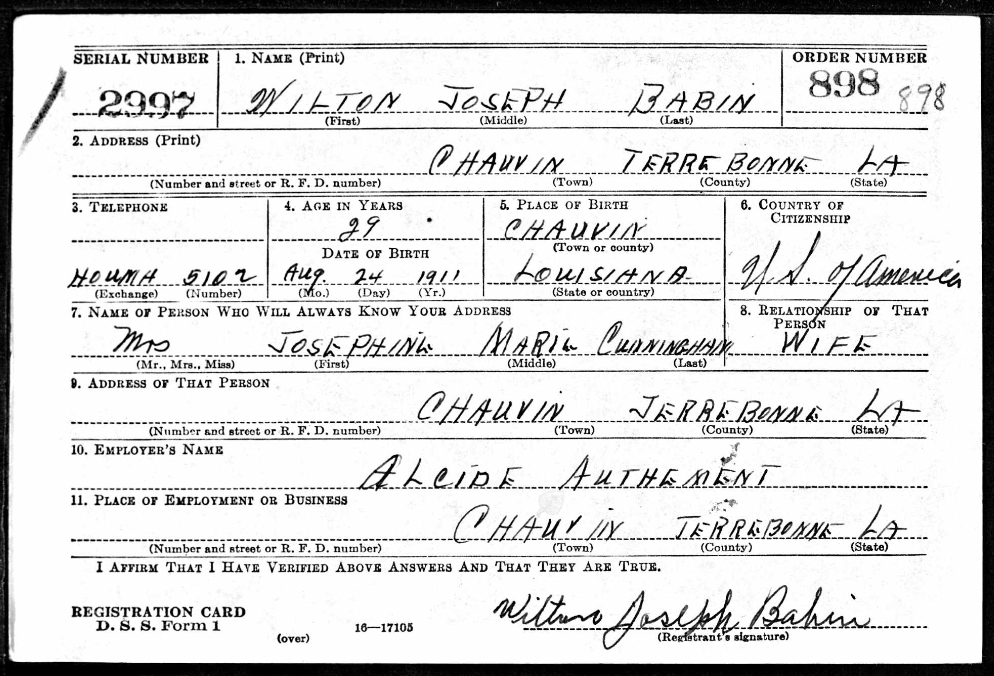 SERIAL NUMBER 1. NAME (Print) ORDER NUMBER
2997 WILTON JOSEPH BABIN 898 898
(First) (Middle) (Last)
2. ADDRESS (Print)
CHAUVIN TERREBONNE LA
(Number and street or R. F. D. number) (Town) (County) (State)
3. TELEPHONE 4. AGE IN YEARS 5. PLACE OF BIRTH 6. COUNTRY OF CITIZENSHIP
29 CHAUVIN
DATE OF BIRTH (Town or county)
HOUMA 5102 Aug. 24 1911 LOUISIANA U S. of America
(Exchange) (Number) (Mo.) (Day) (Yr.) (State or country)
7. NAME OF PERSON WHO WILL ALWAYS KNOW YOUR ADDRESS 8. RELATIONSHIP OF THAT PERSON
Mrs JOSEPHINE MARIE CUNNINGHAM WIFE
(Mr., Mrs., Miss) (First) (Middle) (Last)
9. ADDRESS OF THAT PERSON
CHAUVIN TERREBONNE LA
(Number and street or R. F. D. number) (Town) (County) (State)
10. EMPLOYER'S NAME
ALCIDE AUTHEMENT
11. PLACE OF EMPLOYMENT OR BUSINESS
CHAUVIN TERREBONNE LA
(Number and street or R. F. D. number) (Town) (County) (State)
I AFFIRM THAT I HAVE VERIFIED ABOVE ANSWERS AND THAT THEY ARE TRUE.
REGISTRATION CARD Wilton Joseph Babin
D. S. S. Form 1 (over) 16—17105 (Registrant's signature)